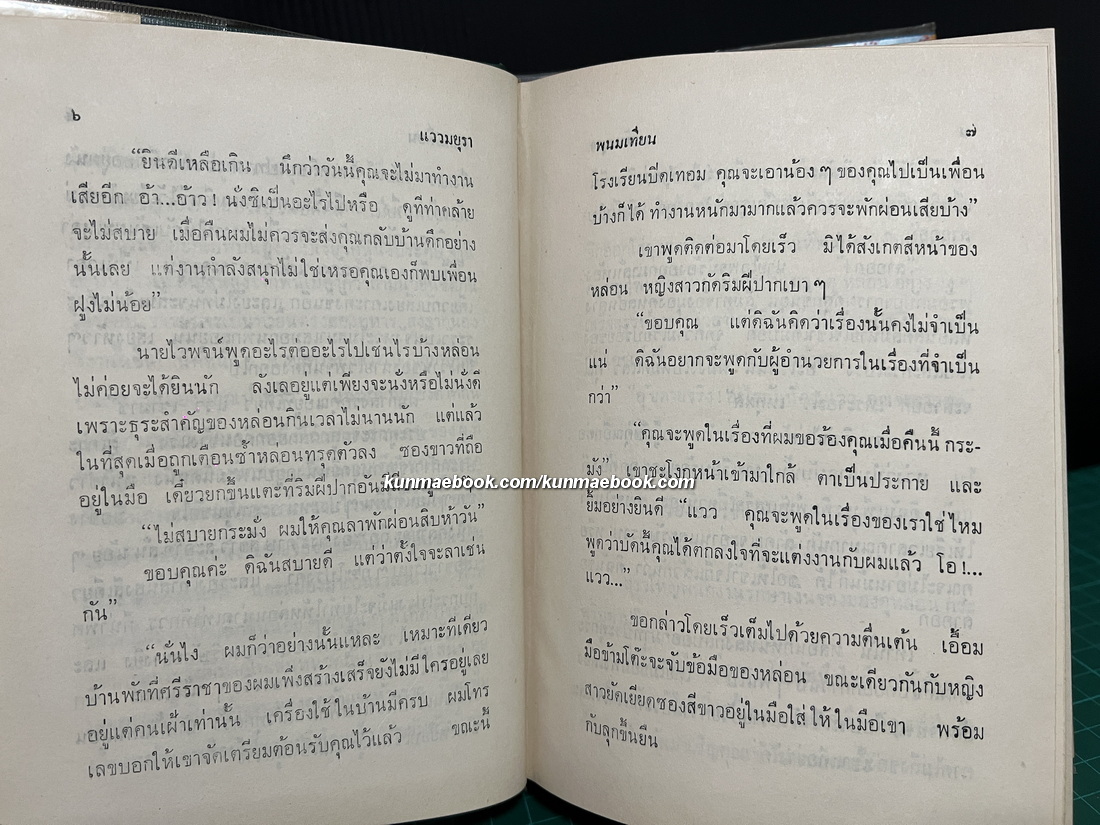 ๖
แววมยุรา
“ยินดีเหลือเกิน นึกว่าวันนี้คุณจะไม่มาทำงาน
เสียอีก อ้า...อ้าว ! นั่งซิเป็นอะไรไปหรือ ดูทีท่าคล้าย
จะไม่สบาย เมื่อคืนผมไม่ควรจะส่งคุณกลับบ้านดึกอย่าง
นั้นเลย แต่งานกำลังสนุกไม่ใช่เหรอคุณเองก็พบเพื่อน
ฝูงไม่น้อย”
นายไวพจน์พูดอะไรต่ออะไรไปเช่นไรบ้างหล่อน
ไม่ค่อยจะได้ยินนัก ลังเลอยู่แต่เพียงจะนั่งหรือไม่นั่งดี
เพราะธุระสำคัญของหล่อนกินเวลาไม่นานนัก แต่แล้ว
ในที่สุดเมื่อถูกเตือนซ้ำหล่อนทรุดตัวลง ซองขาวที่ถือ
อยู่ในมือ เดี๋ยวยกขึ้นแตะที่ริมฝีปากอันมี
kunmaebook.com/kunmaebook.com
“ไม่สบายกระมั่ง ผมให้คุณลาพักผ่อนสิบห้าวัน”
ขอบคุณค่ะ ดิฉันสบายดี แต่ว่าตั้งใจจะลาเช่น
กัน”
“นั่นไง ผมก็ว่าอย่างนั้นแหละ เหมาะทีเดียว
บ้านพักที่ศรีราชาของผมเพิ่งสร้างเสร็จยังไม่มีใครอยู่เลย
อยู่แต่คนเฝ้าเท่านั้น เครื่องใช้ในบ้านมีครบ ผมโทร
เลขบอกให้เขาจัดเตรียมต้อนรับคุณไว้แล้ว ขณะนี้
พนมเทียน
๗
โรงเรียนปิดเทอม คุณจะเอาน้อง ๆ ของคุณไปเป็นเพื่อน
บ้างก็ได้ ทำงานหนักมามากแล้วควรจะพักผ่อนเสียบ้าง”
เขาพูดติดต่อมาโดยเร็ว มิได้สังเกตสีหน้าของ
หล่อน หญิงสาวกัดริมฝีปากเบา ๆ
“ขอบคุณ แต่ดิฉันคิดว่าเรื่องนั้นคงไม่จำเป็น
แน่ ดิฉันอยากจะพูดกับผู้อำนวยการในเรื่องที่จำเป็น
กว่า”
“คุณจะพูดในเรื่องที่ผมขอร้องคุณเมื่อคืนนี้ กระ-
มัง” เขาชะโงกหน้าเข้ามาใกล้ ตาเป็นประกาย และ
ยิ้มอย่างยินดี “แวว คุณจะพูดในเรื่องของเราใช่ไหม
พูดว่าบัดนี้คุณได้ตกลงใจที่จะแต่งงานกับผมแล้ว โอ !...
แวว...”
ขอกล่าวโดยเร็วเต็มไปด้วยความตื่นเต้น เอื้อม
มือข้ามโต๊ะจะจับข้อมือของหล่อน ขณะเดียวกันกับหญิง
สาวยัดเยียดซองสีขาวอยู่ในมือใส่ให้ในมือเขา พร้อม
กับลุกขึ้นยืน